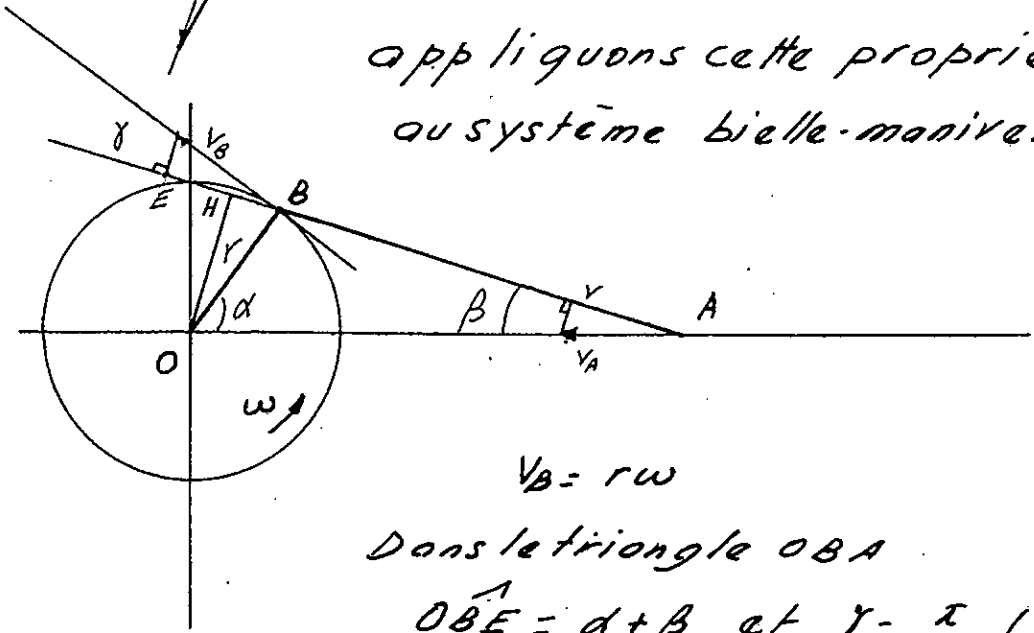 appliquons cette proprié
au système bielle-manive
γ
V_B
E
H
B
r
α
β
v
A
V_A
O
ω
V_B = rω
Dans le triangle OBA
OBE = α + β et γ = π (